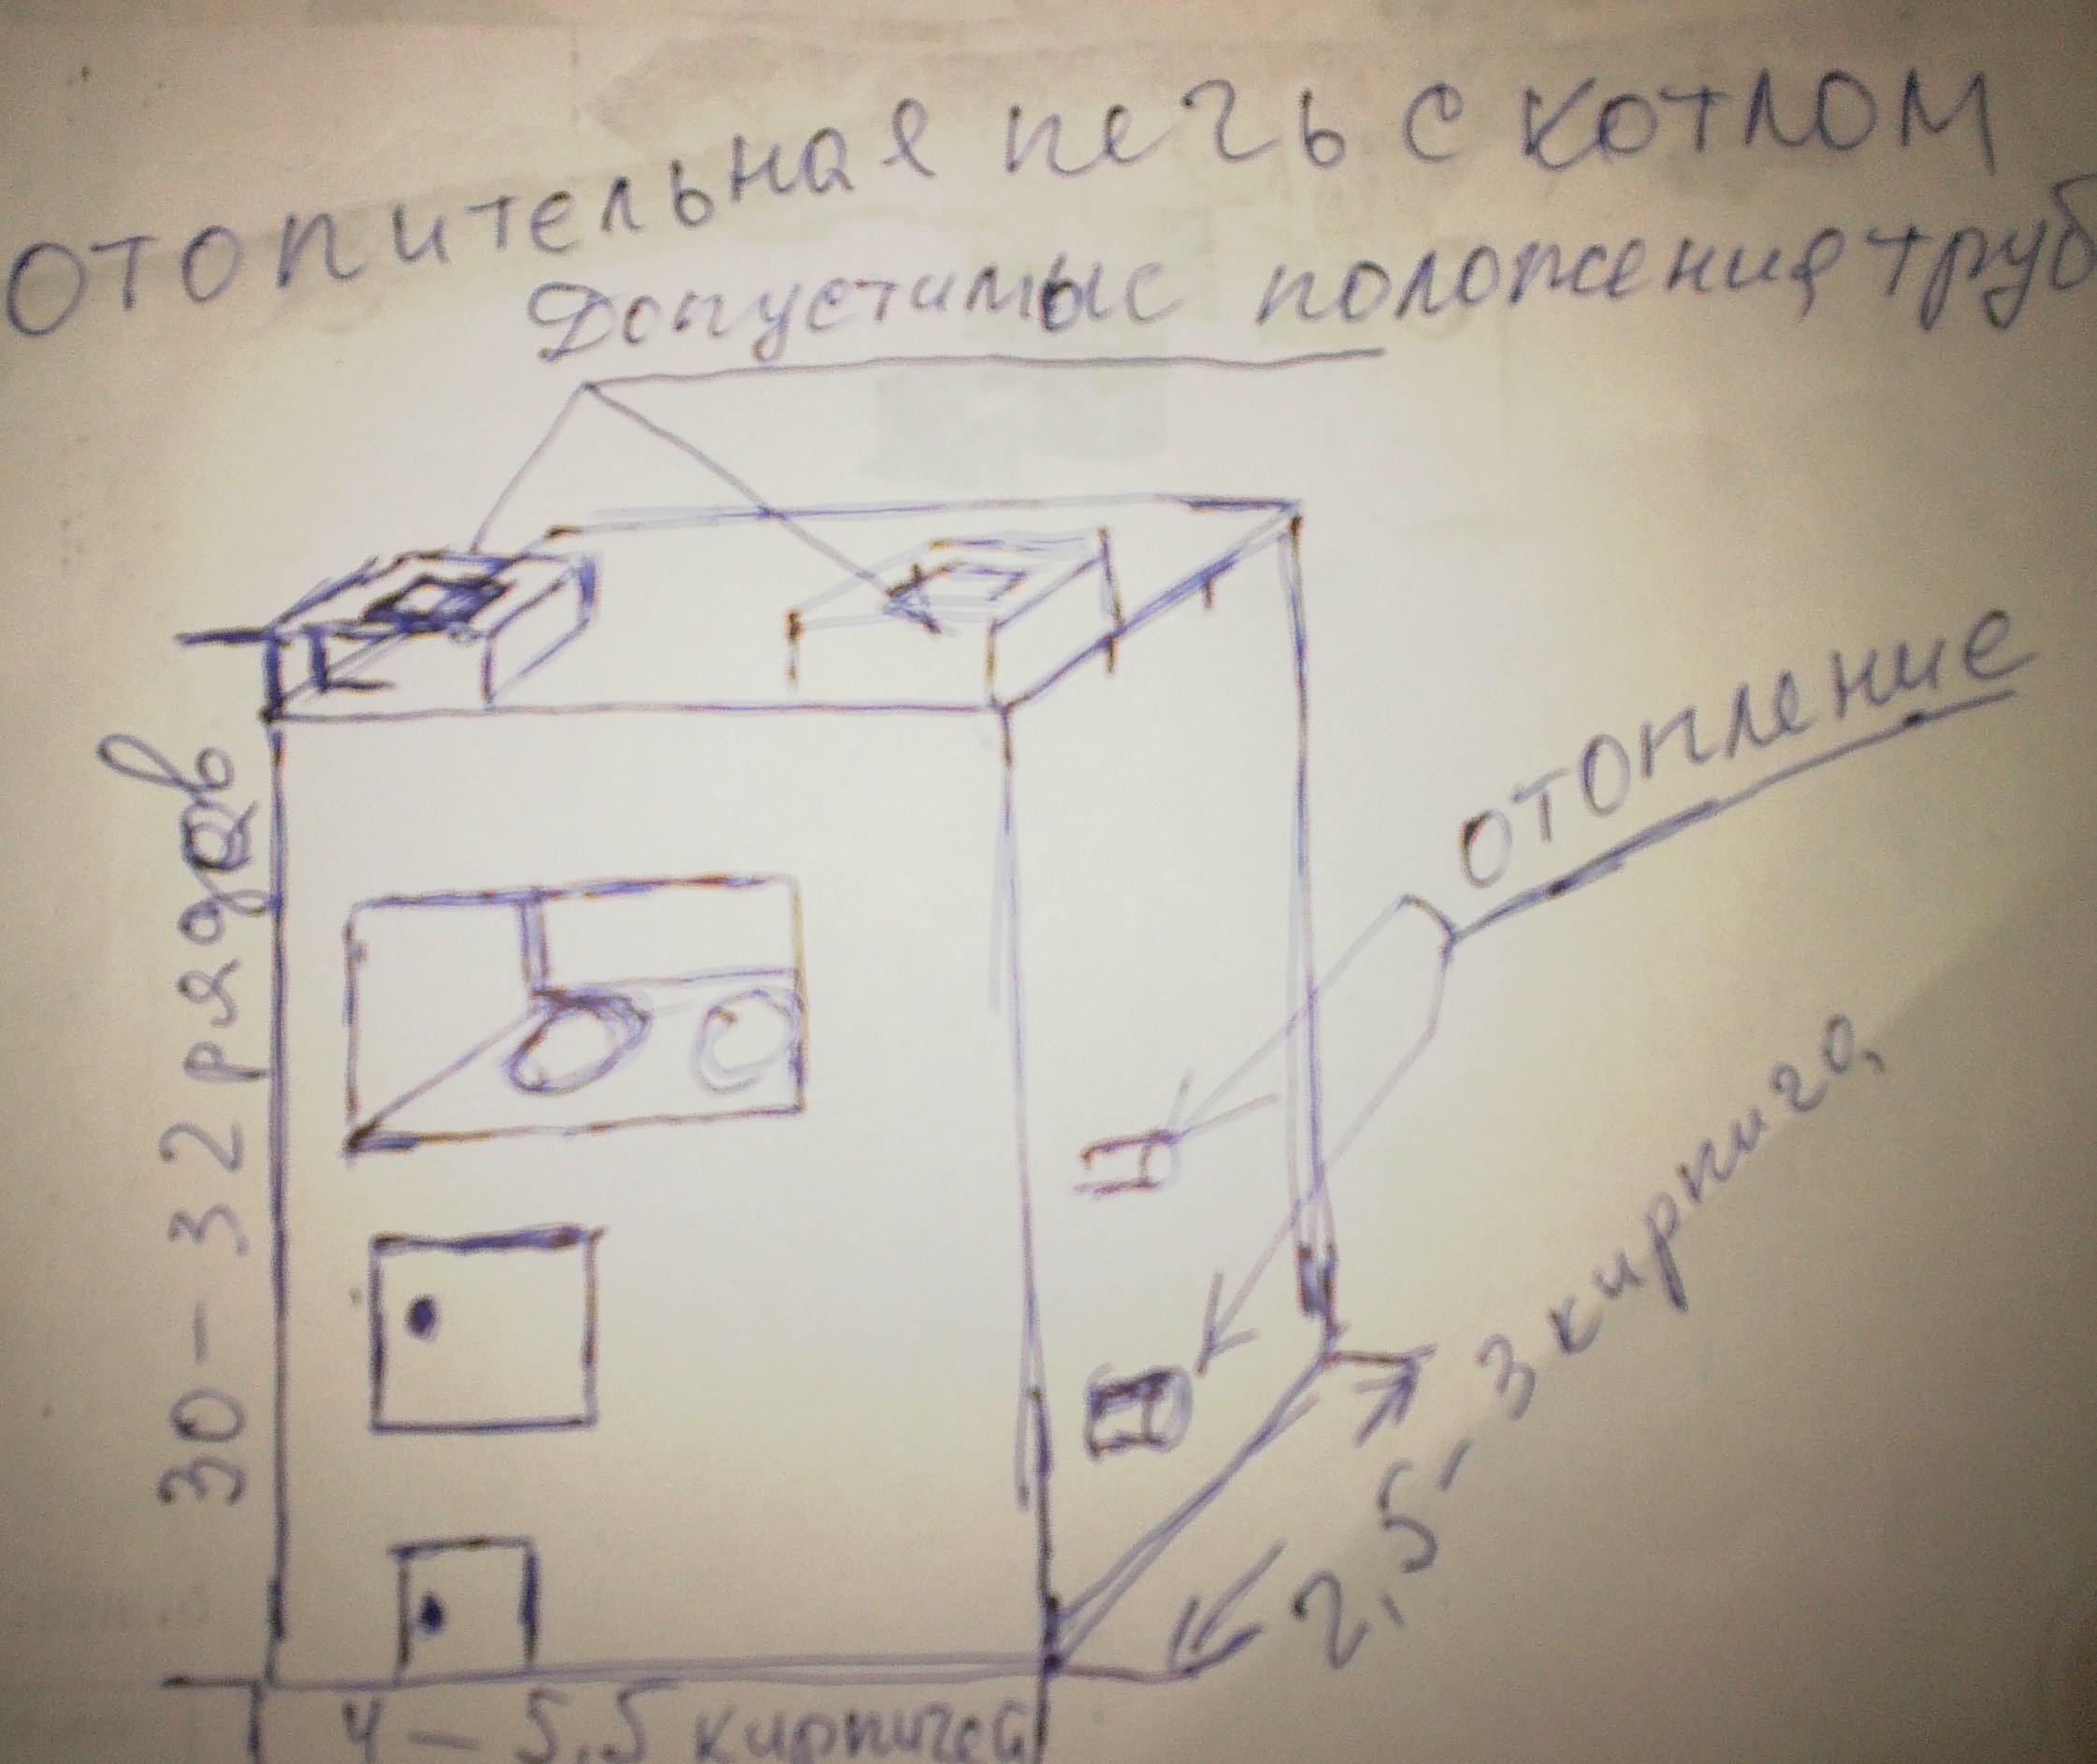 Отопительная печь с котлом
Допустимые положения труб
30-32 рядов
отопление
2,5-3 кирпича
4-5,5 кирпичей